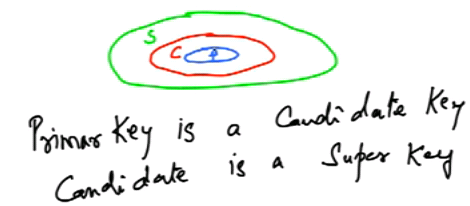 S
C
P
Primar Key is a Candidate Key
Candidate is a Super Key